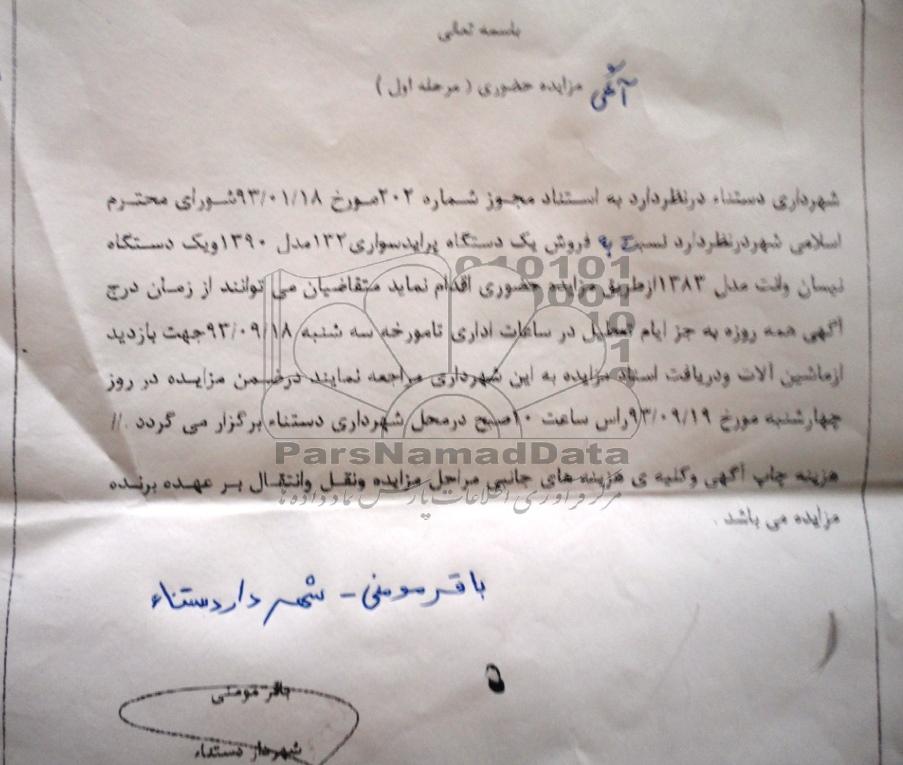 باسمه تعالی
آگهی مزایده حضوری ( مرحله اول )
شهرداری دستناء درنظردارد به استناد مجوز شماره ۲۰۲مورخ ۹۳/۰۱/۱۸شورای محترم
اسلامی شهردرنظردارد نسبت به فروش یک دستگاه پرایدسواری۱۳۲مدل ۱۳۹۰ویک دستگاه
نیسان وانت مدل ۱۳۸۳ازطریق مزایده حضوری اقدام نماید متقاضیان می توانند از زمان درج
آگهی همه روزه به جز ایام تعطیل در ساعات اداری تامورخه سه شنبه ۹۳/۰۹/۱۸جهت بازدید
ازماشین آلات ودریافت اسناد مزایده به این شهرداری مراجعه نمایند درضمن مزایده در روز
چهارشنبه مورخ ۹۳/۰۹/۱۹راس ساعت ۱۰صبح درمحل شهرداری دستناء برگزار می گردد .//
هزینه چاپ آگهی وکلیه ی هزینه های جانبی مراحل مزایده ونقل وانتقال بر عهده برنده
مزایده می باشد .
باقر مومنی - شهردار دستناء
باقر مومنی
شهردار دستناء
010101
0001
10
1
ParsNamadData
مرکز فرآوری اطلاعات پارس نماد داده ها